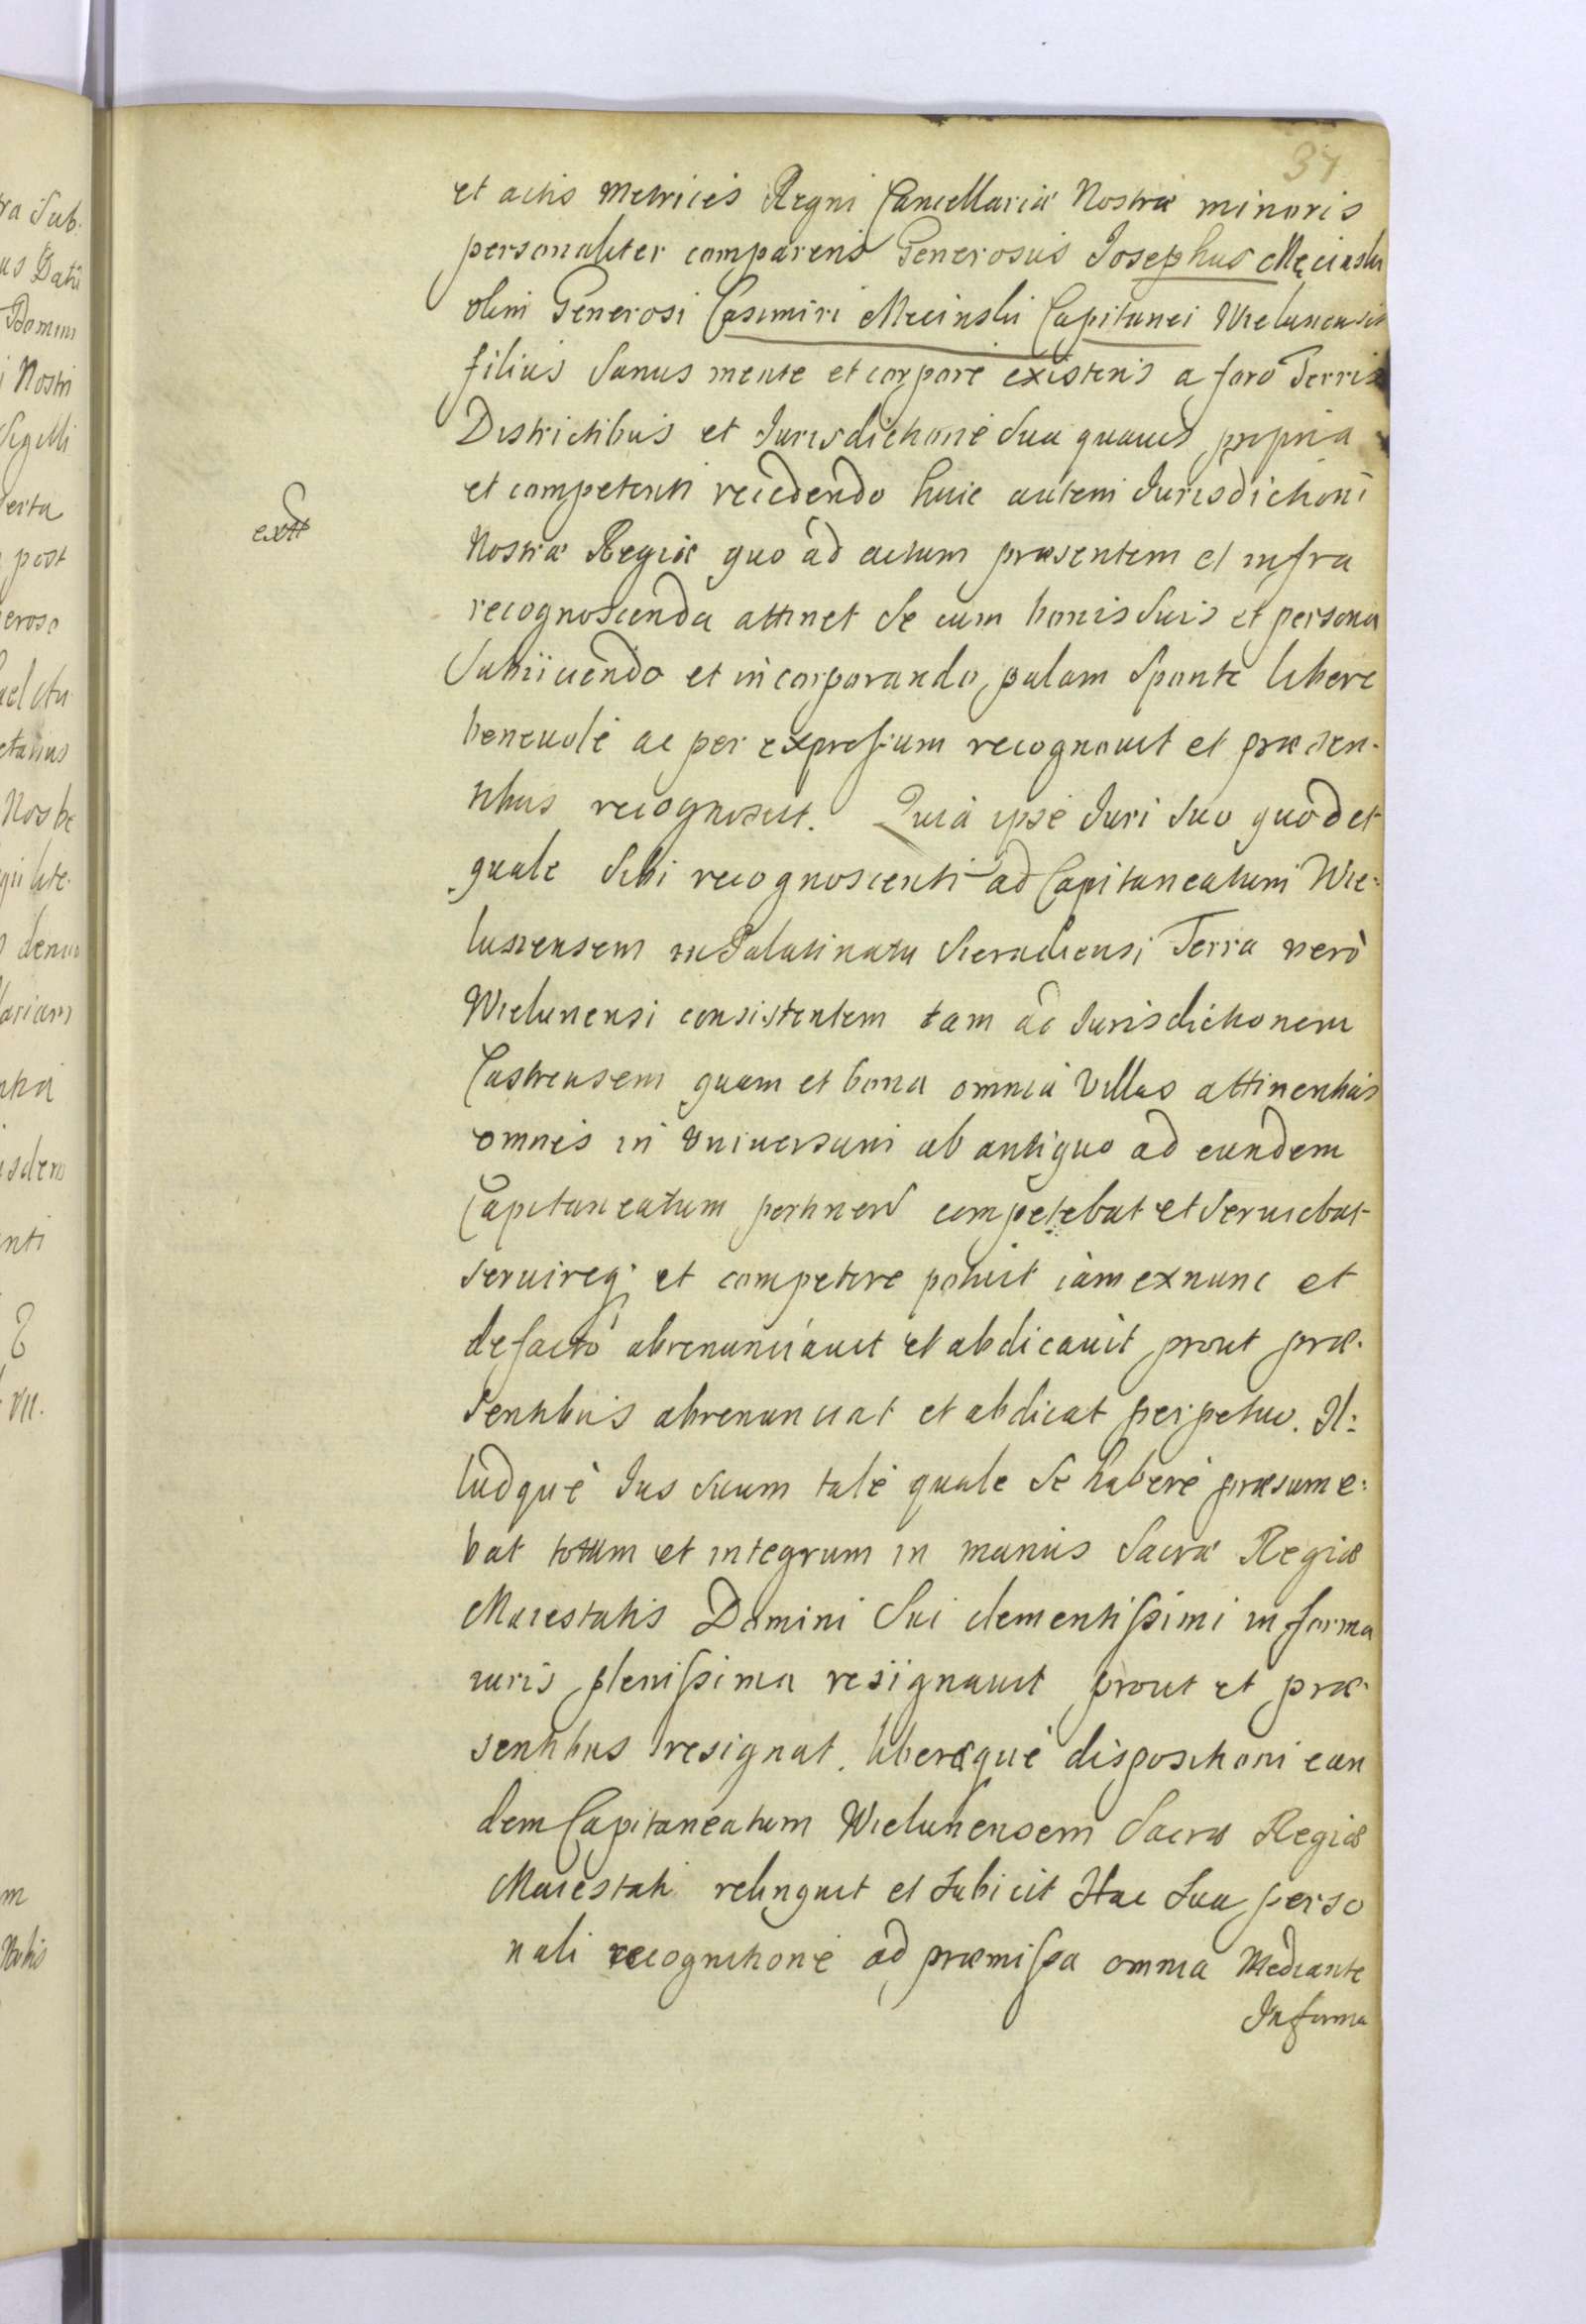 37
et actis Metrices Regni Cancellariæ Nostræ minoris
personaliter comparens Generosus Josephus Męcinski
olim Generosi Casimiri Mecinski Capitanei Wielunensis
filius Sanus mente et corpore existens a foro Terris
Districtibus et Jurisdictione Sua quavis propria
et competenti recedendo huic autem Jurisdictioni
extt
Nostræ Regiæ quo ad actum præsentem et infra
recognoscenda attinet Se cum bonis Suis et persona
Subiiciendo et incorporando, palam Sponte libere
beneuole ac per expressum recognouit et præsen-
tibus recognoscit. Quia ipse Juri Suo quod et
quale Sibi recognoscenti ad Capitaneatum Wie:
lunensem in Palatinatu Sieradiensi Terra vero
Wielunensi consistentem tam ad Jurisdictionem
Castrensem quam et bona omnia Villas attinentias
omnes in universum ab antiquo ad eundem
Capitaneatum pertinen competebat et Seruiebat
seruireq; et competere potuit iam exnunc et
de facto abrenunciauit et abdicauit prout præ-
sentibus abrenunciat et abdicat perpetuo. Il:
ludque Jus Suum tale quale Se habere præsume:
bat totum et integrum in manus Sacræ Regiæ
Maiestatis Domini Sui clementissimi in forma
iuris plenissima resignauit prout et præ-
sentibus resignat. liberæque dispositioni eun
dem Capitaneatum Wielunensem Sacræ Regiæ
Maiestati relinquit et Subicit Hac Sua perso
nali recognitione ad præmissa omnia Mediante
In forma
ra Sub:
us Datū
Domini
i Nostri
Sigilli
post
eroso
etanus
denuo
lariam
isdem
nti
VII.
m